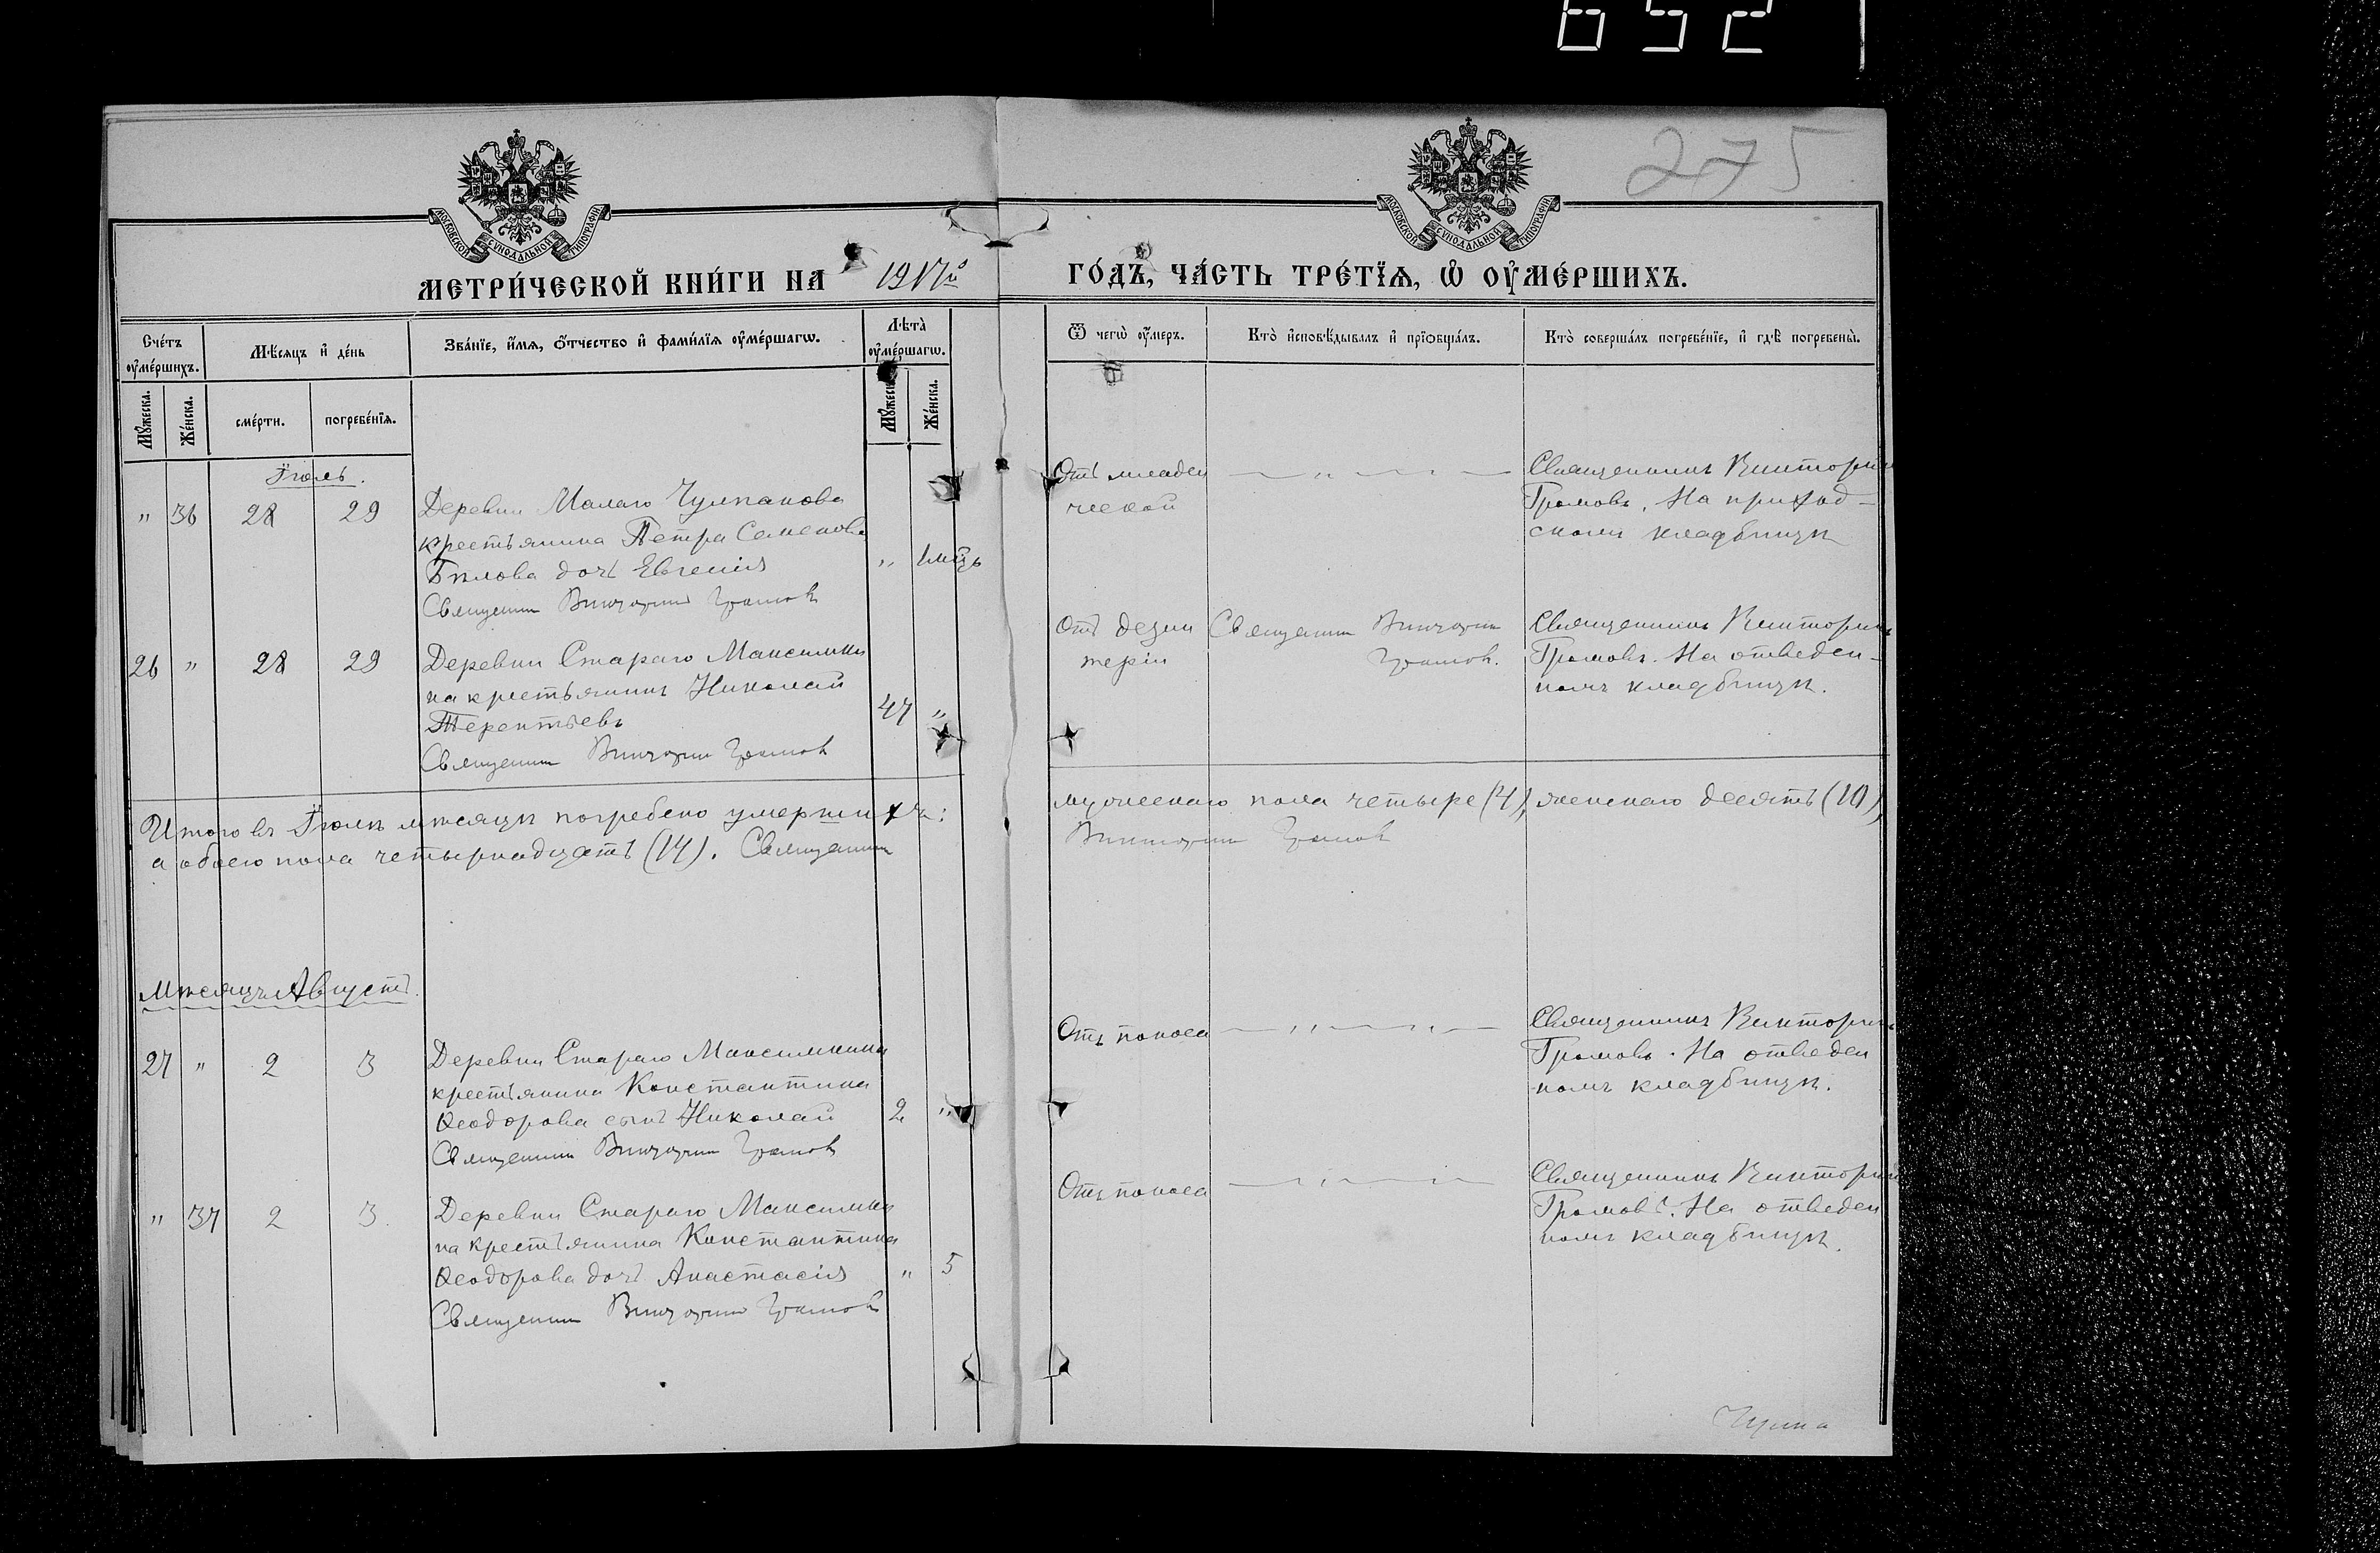 652
275
МОСКОВСКОЙ СѴНОДАЛЬНОЙ ТИПОГРАФІИ
МОСКОВСКОЙ СѴНОДАЛЬНОЙ ТИПОГРАФІИ
МЕТРИ́ЧЕСКОЙ КНИ́ГИ НА 1917й ГО́ДЪ, ЧА́СТЬ ТРЕ́ТЇѦ, Ѡ҆ ОУ҆МЕ́РШИХЪ.
Сче́тъ оу҆ме́ршихъ.
Мѣ́сяцъ и҆ де́нь
Зва́нїе, и҆́мѧ, ѻ҆́тчество и҆ фами́лїѧ оу҆ме́ршагѡ.
Лѣта̀ оу҆ме́ршагѡ.
Ѿ чегѡ̀ оу҆́меръ.
Кто̀ и҆сповѣ́дывалъ и҆ прїѻбща́лъ.
Кто̀ соверша́лъ погребе́нїе, и҆ гдѣ̀ погребены̀.
Мꙋ́жеска.
Же́нска.
сме́рти.
погребе́нїѧ.
Мꙋ́жеска.
Же́нска.
Іюль.
" 36 28 29 Деревни Малаго Чулпанова
крестьянина Петра Семенова
Бѣлова дочь Евгенія " 1 мѣц.
Священник Викторин Громов
Отъ младен
ческой
Священникъ Викторинъ
Громовъ. На приход-
скомъ кладбищѣ
26 " 28 29 Деревни Стараго Максимки
на крестьянинъ Николай
Терентьевъ 47 "
Священник Викторин Громов
Отъ дезин
теріи
Священник Викторин
Громов.
Священникъ Викторинъ
Громовъ. На отведен-
номъ кладбищѣ.
Итого въ Іюлѣ мѣсяцѣ погребено умершихъ: мужескаго пола четыре (4), женскаго десять (10),
а обоего пола четырнадцать (14). Священник Викторин Громов
Мѣсяцъ Августъ.
27 " 2 3 Деревни Стараго Максимкина
крестьянина Константина
Ѳеодорова сынъ Николай 2 "
Священник Викторин Громов
Отъ поноса
Священникъ Викторинъ
Громовъ. На отведен
номъ кладбищѣ.
" 37 2 3. Деревни Стараго Максимки
на крестьянина Константина
Ѳеодорова дочь Анастасія " 5
Священник Викторин Громов
Отъ поноса
Священникъ Викторинъ
Громовъ. На отведен
номъ кладбищѣ.